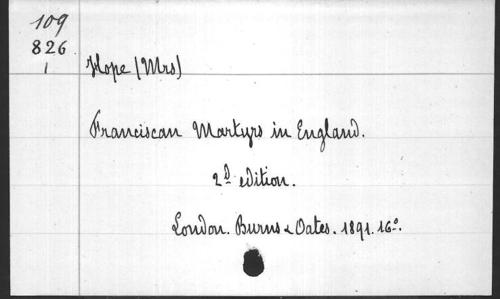 109
826
1
Hope (Mrs)
Franciscan Martyrs in England.
2d edition.
London. Burns & Oates. 1891. 16º.